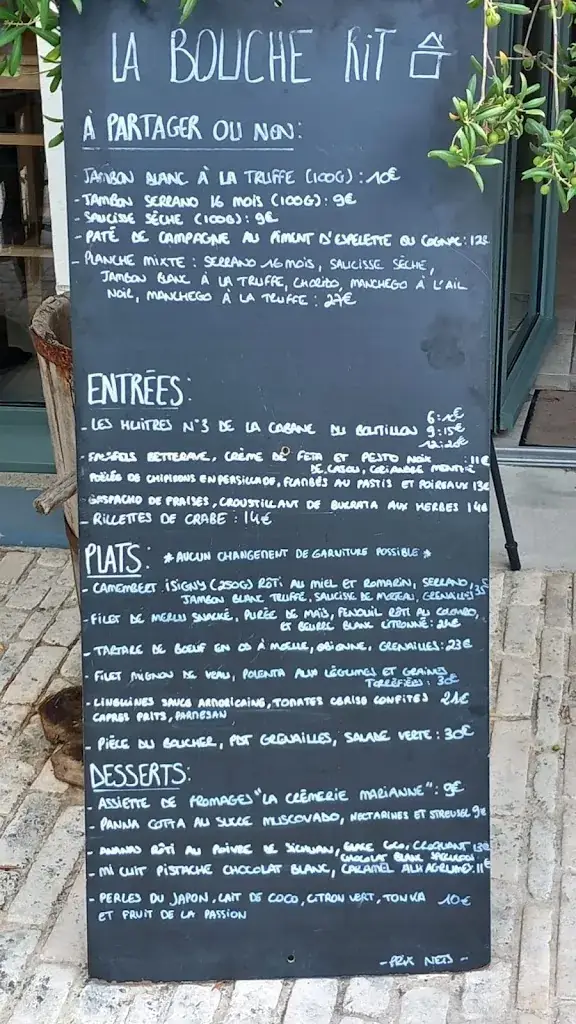 LA BOUCHE RIT
À PARTAGER OU NON:
- JAMBON BLANC À LA TRUFFE (100G) : 10€
- JAMBON SERRANO 16 MOIS (100G) : 9€
- SAUCISSE SÈCHE (100G) : 9€
- PATÉ DE CAMPAGNE AU PIMENT D'ESPELETTE OU COGNAC : 12€
- PLANCHE MIXTE : SERRANO 16 MOIS, SAUCISSE SÈCHE,
JAMBON BLANC À LA TRUFFE, CHORIZO, MANCHEGO À L'AIL
NOIR, MANCHEGO À LA TRUFFE : 27€
ENTRÉES:
- LES HUÎTRES N°3 DE LA CABANE DU BOUTILLON 6:
9:15€
12:20€
- FALAFELS BETTERAVE, CRÈME DE FETA ET PESTO NOIX : 11€
DE CAJOU, CORIANDRE MENTHE
POÊLÉE DE CHIPIRONS EN PERSILLADE, FLAMBÉS AU PASTIS ET POIREAUX 13€
GASPACHO DE FRAISES, CROUSTILLANT DE BURRATA AUX HERBES 14€
- RILLETTES DE CRABE : 14€
PLATS: * AUCUN CHANGEMENT DE GARNITURE POSSIBLE *
- CAMEMBERT ISIGNY (250G) RÔTI AU MIEL ET ROMARIN, SERRANO,
JAMBON BLANC TRUFFÉ, SAUCISSE DE MORTEAU, GRENAILLES
- FILET DE MERLU SNACKÉ, PURÉE DE MAÏS, FENOUIL RÔTI AU COLOMBO,
ET BEURRE BLANC CITRONNÉ :
- TARTARE DE BOEUF EN OS À MOELLE, GRENAILLES : 23€
- FILET MIGNON DE VEAU, POLENTA AUX LÉGUMES ET GRAINES
TORRÉFIÉES : 30€
- LINGUINES SAUCE ARMORICAINE, TOMATES CERISE CONFITES 21€
CAPRES FRITS, PARMESAN
- PIÈCE DU BOUCHER, PDT GRENAILLES, SALADE VERTE : 30€
DESSERTS:
- ASSIETTE DE FROMAGES "LA CRÈMERIE MARIANNE" : 9€
- PANNA COTTA AU SUCRE MUSCOVADO, NECTARINES ET STREUSEL 9€
- ANANAS RÔTI AU POIVRE DE SICHUAN, GLACE COCO, CROQUANT 13€
CHOCOLAT BLANC
- MI CUIT PISTACHE CHOCOLAT BLANC, CARAMEL : 11€
- PERLES DU JAPON, LAIT DE COCO, CITRON VERT, TONKA 10€
ET FRUIT DE LA PASSION
- PRIX NETS -